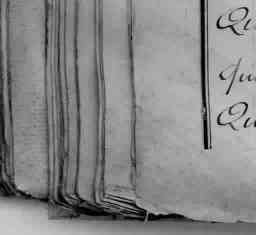 Qu
qu
Qu